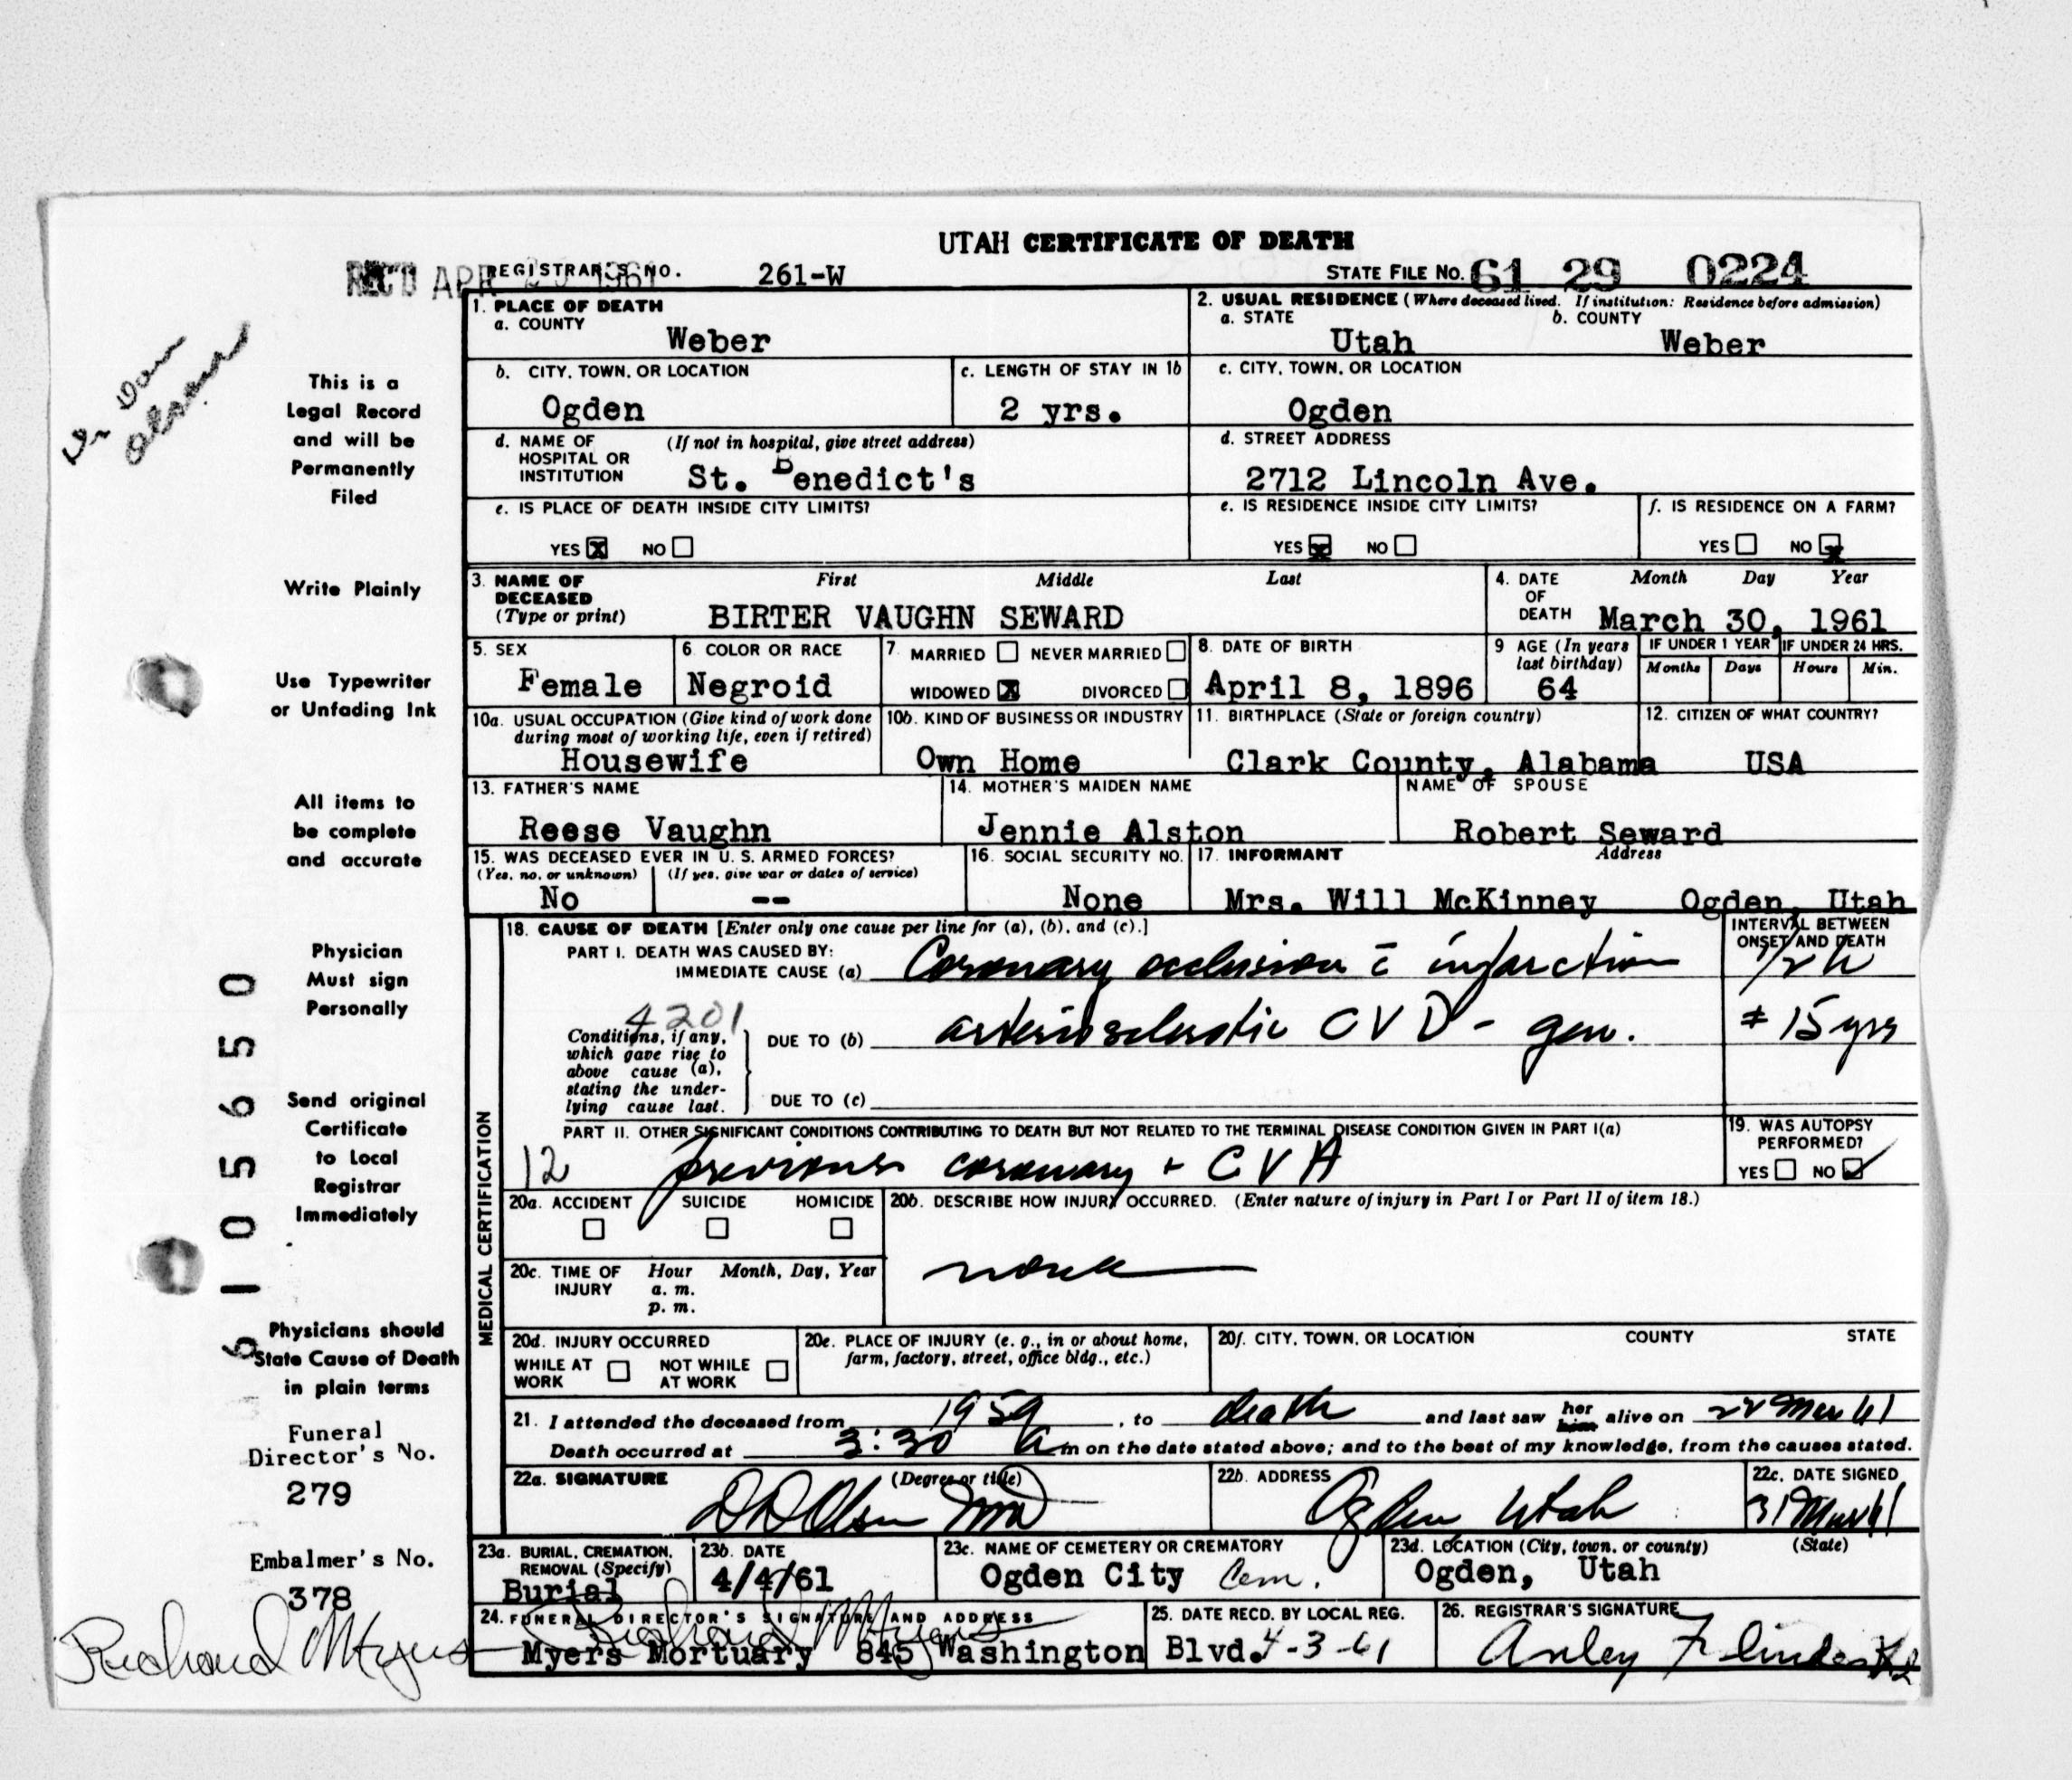 UTAH CERTIFICATE OF DEATH
REC'D APR 1961 REGISTRAR'S NO. 261-W STATE FILE No. 61 29 0224
1. PLACE OF DEATH
a. COUNTY
Weber
2. USUAL RESIDENCE (Where deceased lived. If institution: Residence before admission)
a. STATE b. COUNTY
Utah Weber
b. CITY, TOWN, OR LOCATION
Ogden
c. LENGTH OF STAY IN 1b
2 yrs.
c. CITY, TOWN, OR LOCATION
Ogden
d. NAME OF (If not in hospital, give street address)
HOSPITAL OR
INSTITUTION St. Benedict's
d. STREET ADDRESS
2712 Lincoln Ave.
e. IS PLACE OF DEATH INSIDE CITY LIMITS?
YES X NO
e. IS RESIDENCE INSIDE CITY LIMITS?
YES X NO
f. IS RESIDENCE ON A FARM?
YES NO X
3. NAME OF First Middle Last
DECEASED
(Type or print) BIRTER VAUGHN SEWARD
4. DATE Month Day Year
OF
DEATH March 30, 1961
5. SEX
Female
6. COLOR OR RACE
Negroid
7. MARRIED NEVER MARRIED
WIDOWED X DIVORCED
8. DATE OF BIRTH
April 8, 1896
9 AGE (In years
last birthday)
64
IF UNDER 1 YEAR IF UNDER 24 HRS.
Months Days Hours Min.
10a. USUAL OCCUPATION (Give kind of work done
during most of working life, even if retired)
Housewife
10b. KIND OF BUSINESS OR INDUSTRY
Own Home
11. BIRTHPLACE (State or foreign country)
Clark County, Alabama
12. CITIZEN OF WHAT COUNTRY?
USA
13. FATHER'S NAME
Reese Vaughn
14. MOTHER'S MAIDEN NAME
Jennie Alston
NAME OF SPOUSE
Robert Seward
15. WAS DECEASED EVER IN U. S. ARMED FORCES?
(Yes, no, or unknown) (If yes, give war or dates of service)
No --
16. SOCIAL SECURITY NO.
None
17. INFORMANT Address
Mrs. Will McKinney Ogden, Utah
MEDICAL CERTIFICATION
18. CAUSE OF DEATH [Enter only one cause per line for (a), (b), and (c).]
INTERVAL BETWEEN
ONSET AND DEATH
PART I. DEATH WAS CAUSED BY:
IMMEDIATE CAUSE (a) Coronary occlusion c̄ infarction 1/2 h
4201
Conditions, if any,
which gave rise to
above cause (a),
stating the under-
lying cause last.
DUE TO (b) arteriosclerotic CVD - gen. ± 15 yrs
DUE TO (c)
PART II. OTHER SIGNIFICANT CONDITIONS CONTRIBUTING TO DEATH BUT NOT RELATED TO THE TERMINAL DISEASE CONDITION GIVEN IN PART I(a)
12 previous coronary + CVA
19. WAS AUTOPSY
PERFORMED?
YES NO ✓
20a. ACCIDENT SUICIDE HOMICIDE
20b. DESCRIBE HOW INJURY OCCURRED. (Enter nature of injury in Part I or Part II of item 18.)
none
20c. TIME OF Hour Month, Day, Year
INJURY a. m.
p. m.
20d. INJURY OCCURRED
WHILE AT NOT WHILE
WORK AT WORK
20e. PLACE OF INJURY (e. g., in or about home,
farm, factory, street, office bldg., etc.)
20f. CITY, TOWN, OR LOCATION COUNTY STATE
21. I attended the deceased from 1959, to death and last saw her him alive on 22 Mar 61
Death occurred at 3:30 a m on the date stated above; and to the best of my knowledge, from the causes stated.
22a. SIGNATURE (Degree or title)
DD Olson MD
22b. ADDRESS
Ogden Utah
22c. DATE SIGNED
31 Mar 61
23a. BURIAL, CREMATION,
REMOVAL (Specify)
Burial
23b. DATE
4/4/61
23c. NAME OF CEMETERY OR CREMATORY
Ogden City Cem.
23d. LOCATION (City, town, or county) (State)
Ogden, Utah
24. FUNERAL DIRECTOR'S SIGNATURE AND ADDRESS
Richard Myers
Myers Mortuary 845 Washington Blvd.
25. DATE RECD. BY LOCAL REG.
4-3-61
26. REGISTRAR'S SIGNATURE
Dr Dan
Olson
This is a
Legal Record
and will be
Permanently
Filed
Write Plainly
Use Typewriter
or Unfading Ink
All items to
be complete
and accurate
Physician
Must sign
Personally
Send original
Certificate
to Local
Registrar
Immediately
Physicians should
State Cause of Death
in plain terms
Funeral
Director's No.
279
Embalmer's No.
378
Richard Myers
61 05650